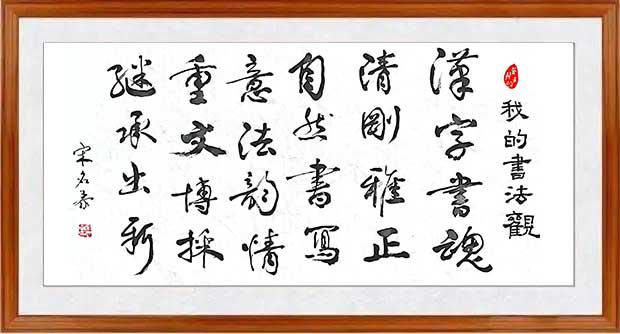 我的書法觀
漢字書魂
清剛雅正
自然書寫
意法韵情
重文博採
継承出新
宋名豪